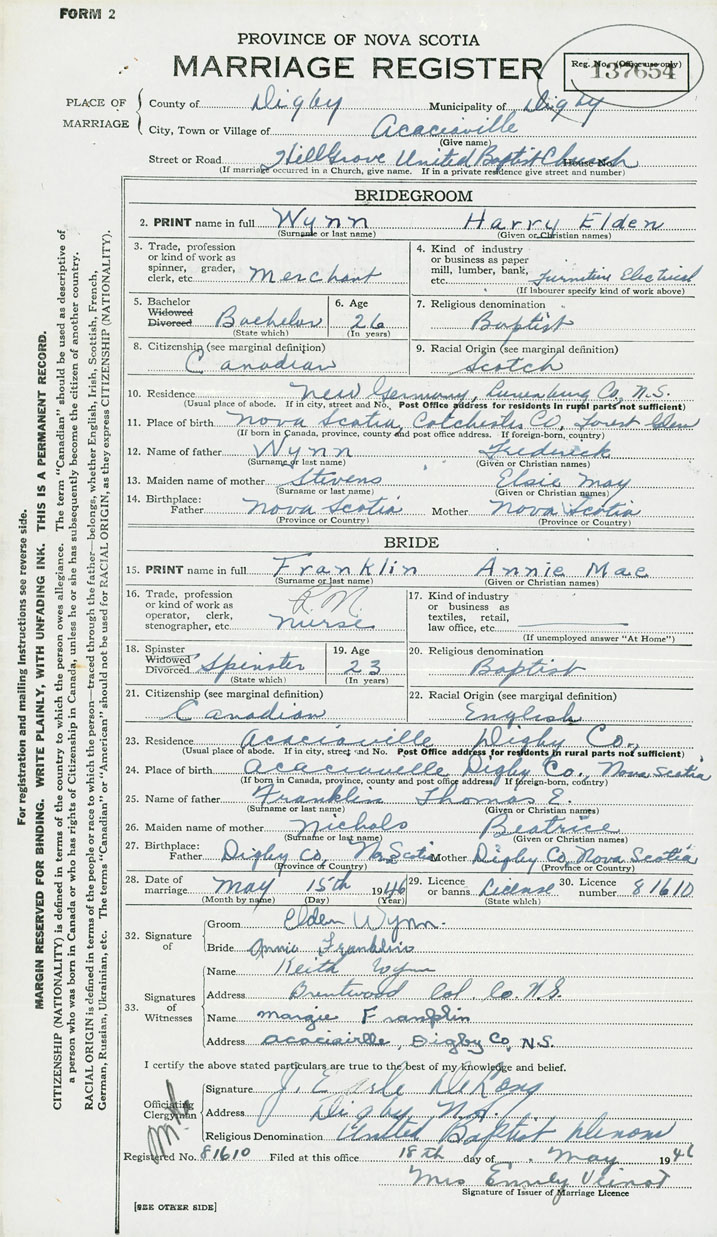 FORM 2
PROVINCE OF NOVA SCOTIA
MARRIAGE REGISTER
Reg. No. (Office use only)
137654
PLACE OF MARRIAGE
County of Digby Municipality of Digby
City, Town or Village of Acaciaville
(Give name)
Street or Road Hillgrove United Baptist Church House No.
(If marriage occurred in a Church, give name. If in a private residence give street and number)
BRIDEGROOM
2. PRINT name in full Wynn Harry Elden
(Surname or last name) (Given or Christian names)
3. Trade, profession or kind of work as spinner, grader, clerk, etc. Merchant
4. Kind of industry or business as paper mill, lumber, bank, etc. Furniture Electrical
(If labourer specify kind of work above)
5. Bachelor Widowed Divorced Bachelor
(State which)
6. Age 26
(In years)
7. Religious denomination
Baptist
8. Citizenship (see marginal definition)
Canadian
9. Racial Origin (see marginal definition)
Scotch
10. Residence New Germany, Lunenburg Co, N.S.
(Usual place of abode. If in city, street and No. Post Office address for residents in rural parts not sufficient)
11. Place of birth Nova Scotia, Colchester Co, Forest Glen
(If born in Canada, province, county and post office address. If foreign-born, country)
12. Name of father Wynn Frederick
(Surname or last name) (Given or Christian names)
13. Maiden name of mother Stevens Elsie May
(Surname or last name) (Given or Christian names)
14. Birthplace: Father Nova Scotia Mother Nova Scotia
(Province or Country) (Province or Country)
BRIDE
15. PRINT name in full Franklin Annie Mae
(Surname or last name) (Given or Christian names)
16. Trade, profession or kind of work as operator, clerk, stenographer, etc. R.N. Nurse
17. Kind of industry or business as textiles, retail, law office, etc.
(If unemployed answer "At Home")
18. Spinster Widowed Divorced Spinster
(State which)
19. Age 23
(In years)
20. Religious denomination
Baptist
21. Citizenship (see marginal definition)
Canadian
22. Racial Origin (see marginal definition)
English
23. Residence Acaciaville Digby Co.,
(Usual place of abode. If in city, street and No. Post Office address for residents in rural parts not sufficient)
24. Place of birth Acaciaville Digby Co., Nova Scotia
(If born in Canada, province, county and post office address. If foreign-born, country)
25. Name of father Franklin Thomas E.
(Surname or last name) (Given or Christian names)
26. Maiden name of mother Nichols Beatrice
(Surname or last name) (Given or Christian names)
27. Birthplace: Father Digby Co, N. Scotia Mother Digby Co, Nova Scotia
(Province or Country) (Province or Country)
28. Date of marriage May 15th 1946
(Month by name) (Day) (Year)
29. Licence or banns License
(State which)
30. Licence number 81610
32. Signature of
Groom Elden Wynn.
Bride Annie Franklin
33. Signatures of Witnesses
Name Keith Wynn
Address Brentwood Col. Co. N.S.
Name Margie Franklin
Address Acaciaville, Digby Co, N.S.
I certify the above stated particulars are true to the best of my knowledge and belief.
Officiating Clergyman
Signature J. E DeLong
Address Digby N.S.
Religious Denomination United Baptist
Registered No. 81610 Filed at this office 18th day of May 1946
Mrs Emily
Signature of Issuer of Marriage Licence
[SEE OTHER SIDE]
For registration and mailing instructions see reverse side.
MARGIN RESERVED FOR BINDING. WRITE PLAINLY, WITH UNFADING INK. THIS IS A PERMANENT RECORD.
CITIZENSHIP (NATIONALITY) is defined in terms of the country to which the person owes allegiance. The term "Canadian" should be used as descriptive of
a person who was born in Canada or who has rights of Citizenship in Canada, unless he or she has subsequently become the citizen of another country.
RACIAL ORIGIN is defined in terms of the people or race to which the person—traced through the father—belongs, whether English, Irish, Scottish, French,
German, Russian, Ukrainian, etc. The terms "Canadian" or "American" should not be used for RACIAL ORIGIN, as they express CITIZENSHIP (NATIONALITY).